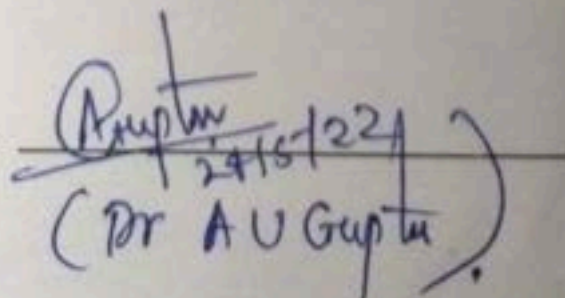 AGupta
24/5/22
(Dr A U Gupta)